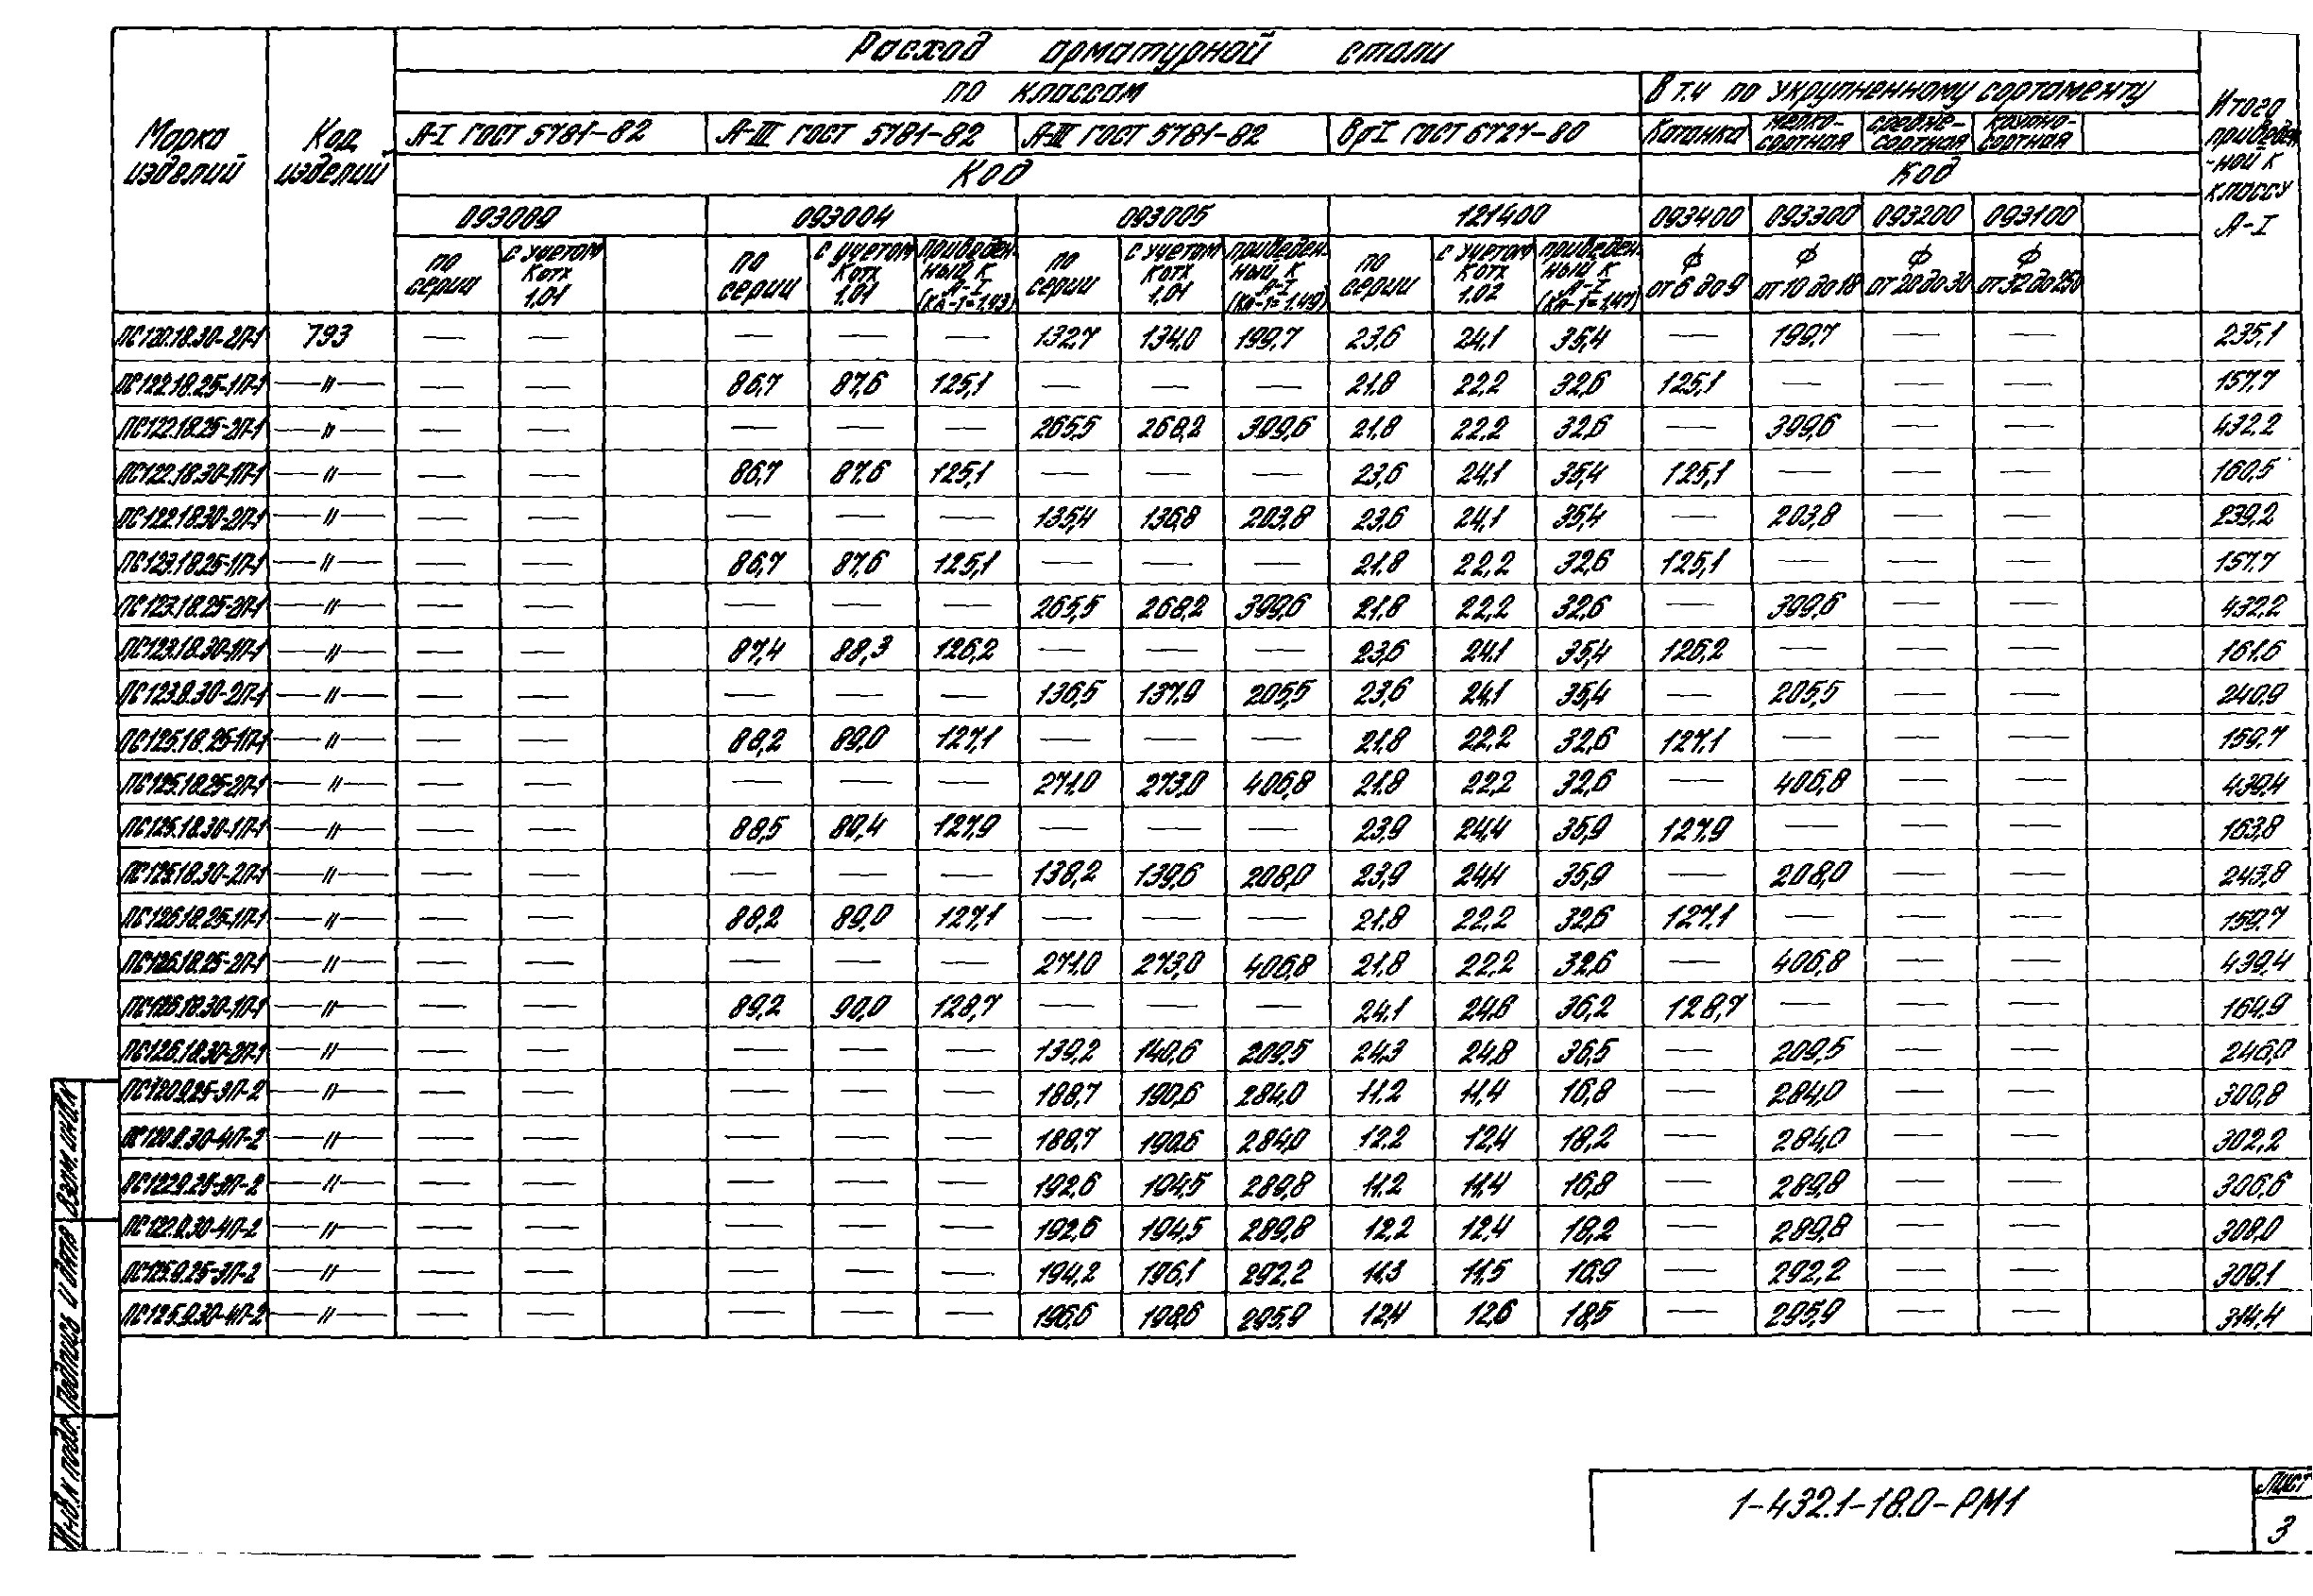 Расход арматурной стали
по классам
В т.ч по укрупненному сортаменту
Марка изделий
Код изделий
А-I ГОСТ 5781-82
А-III ГОСТ 5781-82
А-III ГОСТ 5781-82
ВрI ГОСТ 6727-80
Катанка
мелко-сортная
средне-сортная
крупно-сортная
Итого приведен-ной к классу А-I
Код
Код
093009 093004 093005 121400 093400 093300 093200 093100
по серии
с учетом Котх 1.01
по серии
с учетом Котх 1.01
приведен-ный к А-I (КА-1=1,43)
по серии
с учетом Котх 1,01
приведен-ный к А-I (КА-1=1.49)
по серии
с учетом Котх 1.02
приведен-ный к А-I (КА-1=1,47)
ф от 6 до 9
ф от 10 до 18
ф от 20 до 30
ф от 32 до 250
ПС120.18.30-2П-1 793 — — — — — 132,7 134,0 199,7 23,6 24,1 35,4 — 199,7 — — 235,1
ПС122.18.25-1П-1 —"— — — 86,7 87,6 125,1 — — — 21.8 22,2 32,6 125,1 — — — 157,7
ПС122.18.25-2П-1 —"— — — — — — 265,5 268,2 399,6 21,8 22,2 32,6 — 399,6 — — 432,2
ПС122.18.30-1П-1 —"— — — 86,7 87,6 125,1 — — — 23,6 24,1 35,4 125,1 — — — 160,5
ПС122.18.30-2П-1 —"— — — — — — 135,4 136,8 203,8 23,6 24,1 35,4 — 203,8 — — 239,2
ПС123.18.25-1П-1 —"— — — 86,7 87,6 125,1 — — — 21.8 22,2 32,6 125,1 — — — 157,7
ПС123.18.25-2П-1 —"— — — — — — 265,5 268,2 399,6 21,8 22,2 32,6 — 399,6 — — 432,2
ПС123.18.30-1П-1 —"— — — 87,4 88,3 126,2 — — — 23,6 24,1 35,4 126,2 — — — 161.6
ПС123.8.30-2П-1 —"— — — — — — 136,5 137,9 205,5 23,6 24,1 35,4 — 205,5 — — 240,9
ПС125.18.25-1П-1 —"— — — 88,2 89,0 127,1 — — — 21.8 22,2 32,6 127,1 — — — 159,7
ПС125.18.25-2П-1 —"— — — — — — 271.0 273,0 406,8 21.8 22,2 32,6 — 406,8 — — 439,4
ПС125.18.30-1П-1 —"— — — 88,5 89,4 127,9 — — — 23,9 24,4 35,9 127,9 — — — 163,8
ПС125.18.30-2П-1 —"— — — — — — 138,2 139,6 208,0 23,9 24,4 35,9 — 208,0 — — 243,8
ПС126.18.25-1П-1 —"— — — 88,2 89,0 127,1 — — — 21.8 22,2 32,6 127,1 — — — 159,7
ПС126.18.25-2П-1 —"— — — — — — 271,0 273,0 406,8 21,8 22,2 32,6 — 406,8 — — 439,4
ПС126.18.30-1П-1 —"— — — 89,2 90,0 128,7 — — — 24.1 24,6 36,2 128,7 — — — 164,9
ПС126.18.30-2П-1 —"— — — — — — 139,2 140,6 209,5 24,3 24,8 36,5 — 209,5 — — 246,0
ПС120.9.25-3П-2 —"— — — — — — 188,7 190,6 284,0 11.2 11,4 16,8 — 284,0 — — 300,8
ПС120.9.30-4П-2 —"— — — — — — 188,7 190,6 284,0 12.2 12,4 18,2 — 284,0 — — 302,2
ПС122.9.25-3П-2 —"— — — — — — 192,6 194,5 289,8 11.2 11,4 16,8 — 289,8 — — 306,6
ПС122.9.30-4П-2 —"— — — — — — 192,6 194,5 289,8 12,2 12,4 18,2 — 289,8 — — 308,0
ПС125.9.25-3П-2 —"— — — — — — 194,2 196,1 292,2 11.3 11,5 16,9 — 292,2 — — 309.1
ПС125.9.30-4П-2 —"— — — — — — 196,6 198,6 295,9 12,4 12,6 18,5 — 295,9 — — 314,4
Взам.инв.№
Подпись и дата
Инв.№ подл.
1-432.1-18.0-РМ1
Лист
3